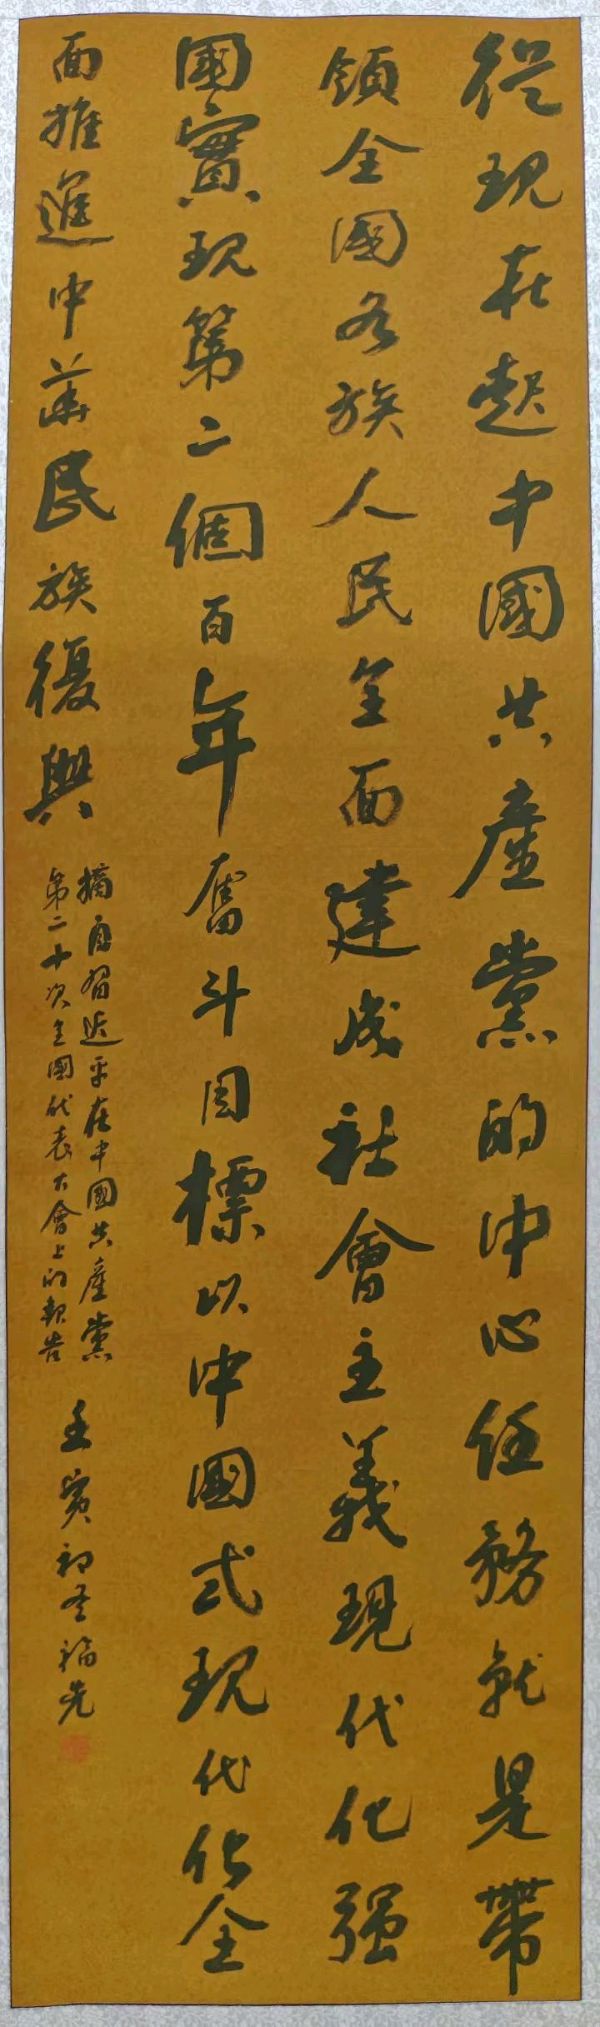 從現在起中國共產黨的中心任務就是帶
領全國各族人民全面建成社會主義現代化强
國實現第二個百年奮斗目標以中國式現代化全
面推進中華民族復興
摘自習近平在中國共產黨
第二十次全國代表大會上的報告
壬寅初冬福先